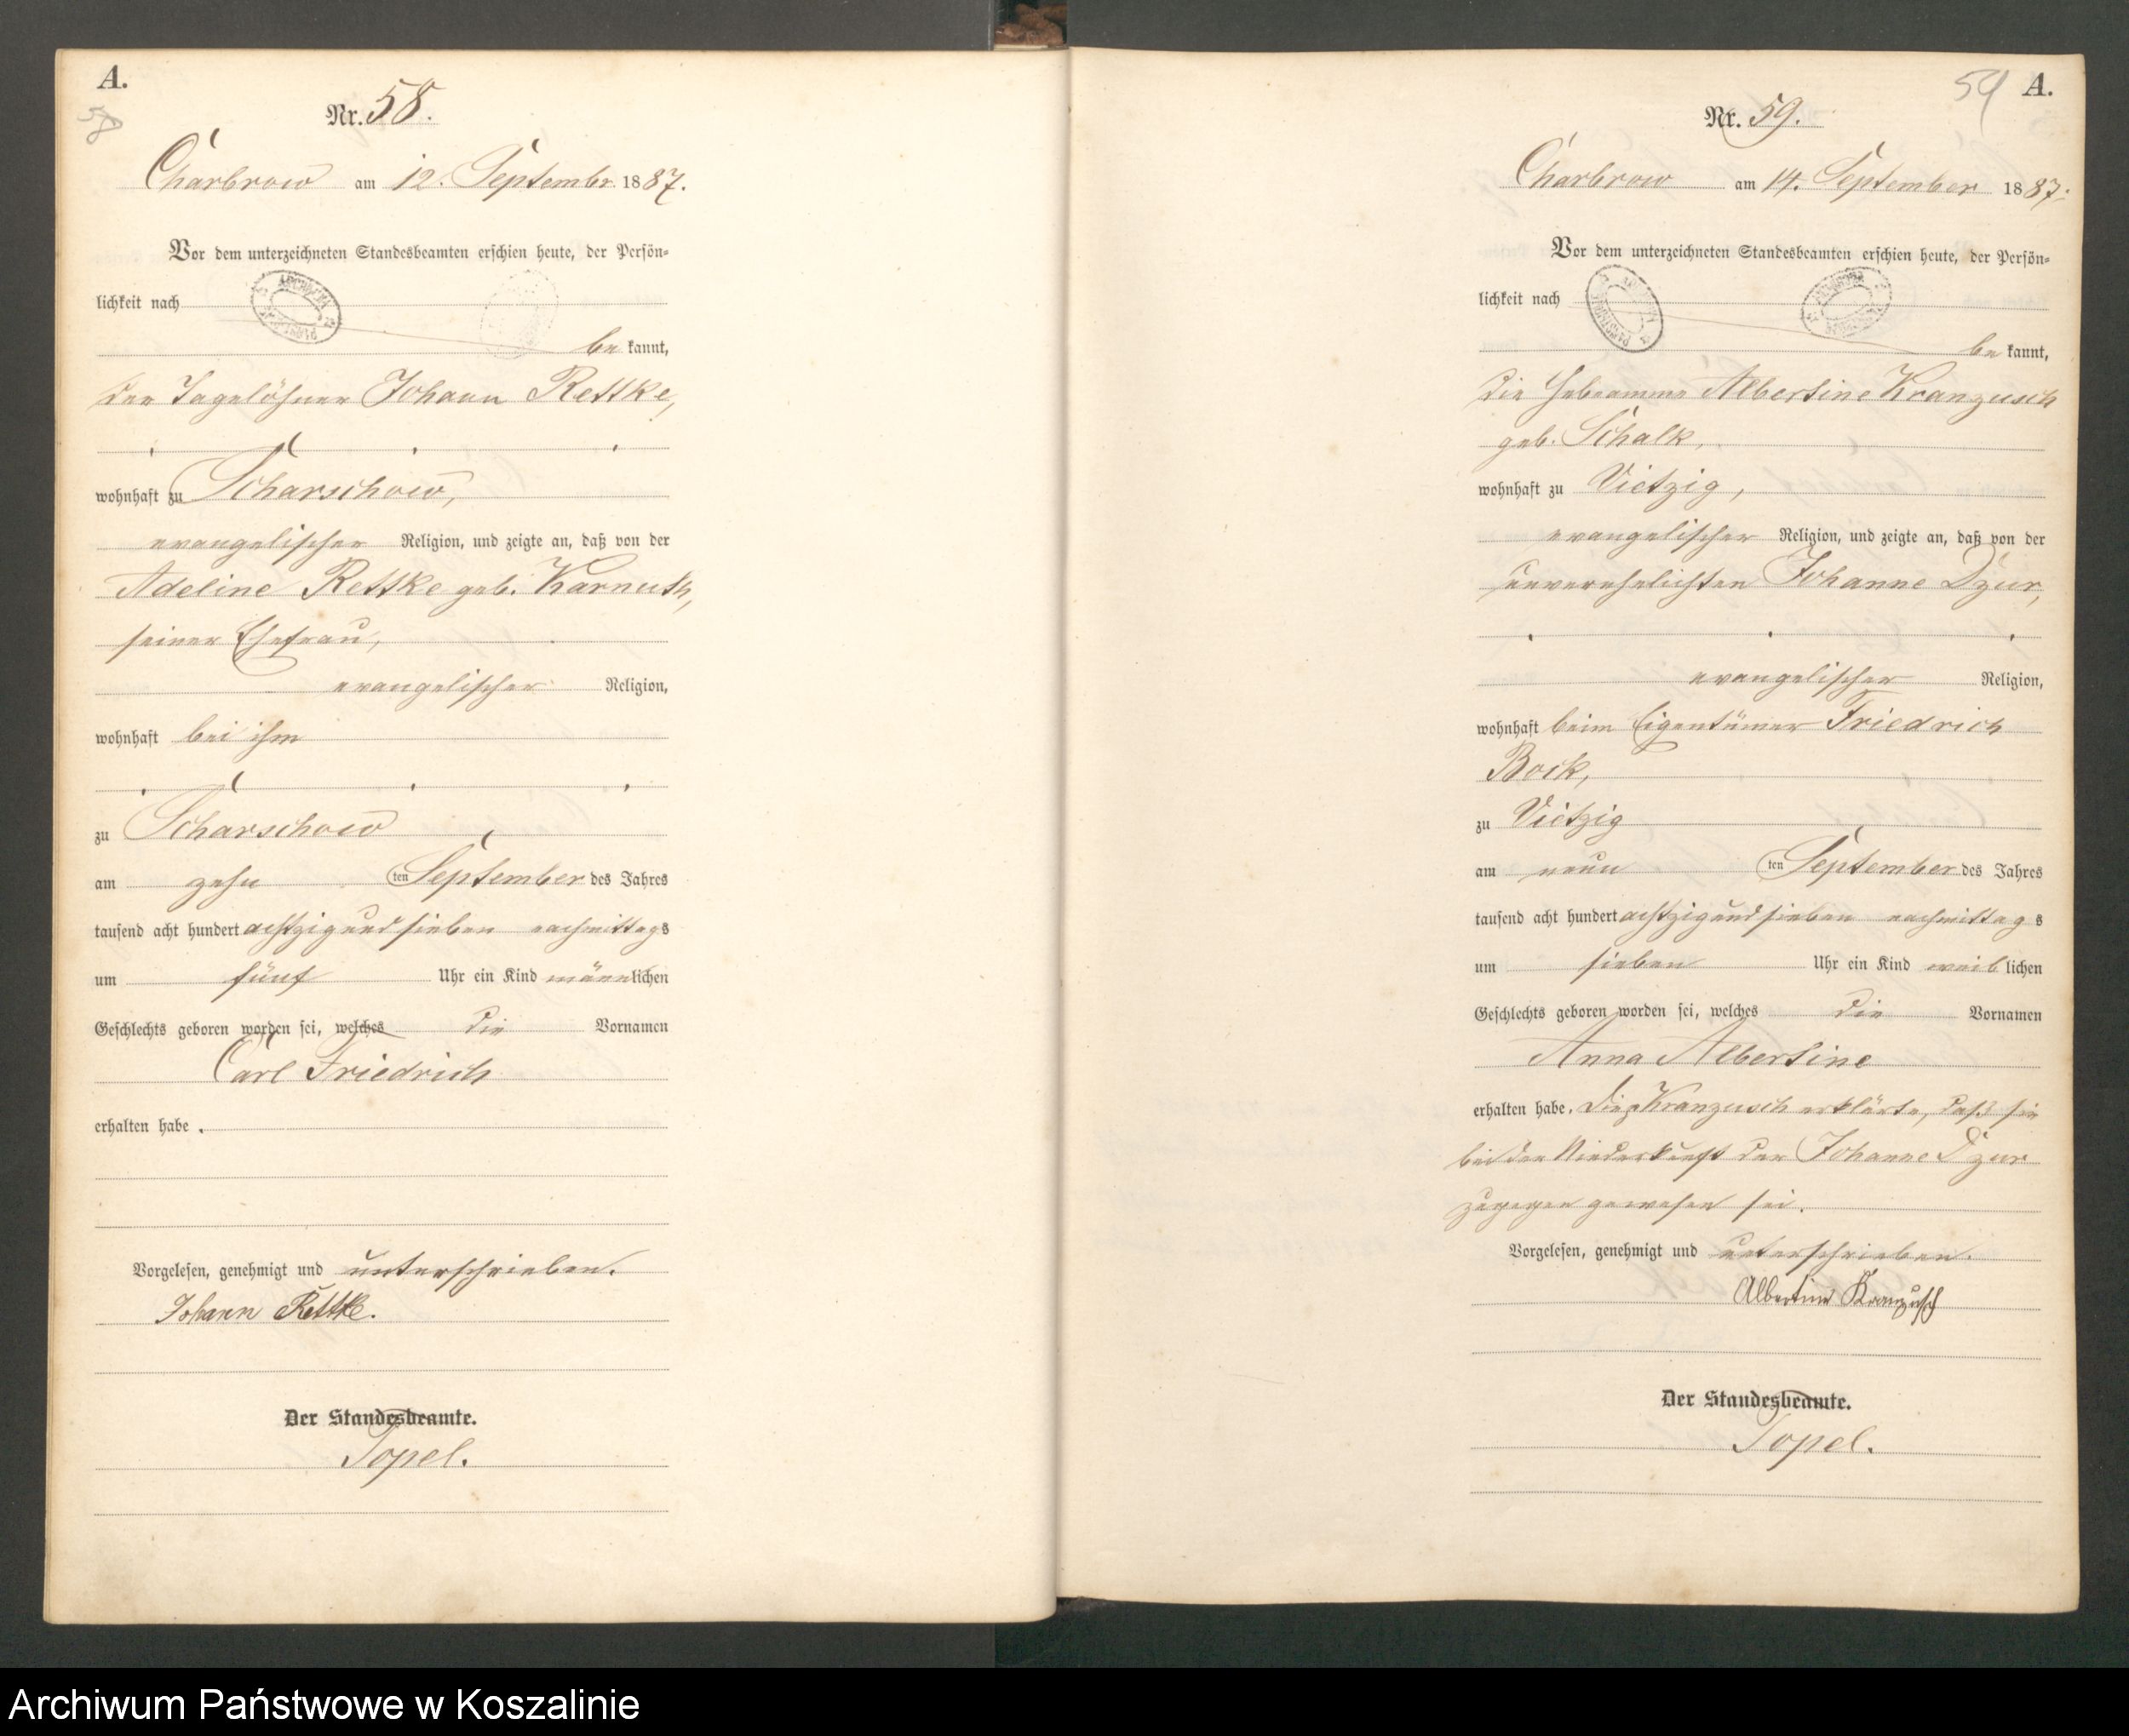 A.
58
Nr. 58.
Charbrow am 12. Septembr. 1887.
Vor dem unterzeichneten Standesbeamten erschien heute, der Persön-
lichkeit nach
be kannt,
der Tagelöhner Johann Rettke,
wohnhaft zu Scharschow,
evangelischer Religion, und zeigte an, daß von der
Adeline Rettke geb. Karnuth,
seiner Ehefrau,
evangelischer Religion,
wohnhaft bei ihm
zu Scharschow
am zehn ten September des Jahres
tausend acht hundert achtzig und sieben nachmittags
um fünf Uhr ein Kind männlichen
Geschlechts geboren worden sei, welches die Vornamen
Carl Friedrich
erhalten habe.
Vorgelesen, genehmigt und unterschrieben.
Johann Rettke.
Der Standesbeamte.
Topel.
59 A.
Nr. 59.
Charbrow am 14. September 1887.
Vor dem unterzeichneten Standesbeamten erschien heute, der Persön-
lichkeit nach
be kannt,
die Hebeamme Albertine Kranzusch
geb. Schalk,
wohnhaft zu Vietzig,
evangelischer Religion, und zeigte an, daß von der
unverehelichten Johanne Dzur,
evangelischer Religion,
wohnhaft beim Eigentümer Friedrich
Bock,
zu Vietzig
am neun ten September des Jahres
tausend acht hundert achtzig und sieben nachmittags
um sieben Uhr ein Kind weiblichen
Geschlechts geboren worden sei, welches die Vornamen
Anna Albertine
erhalten habe. Die Kranzusch erklärte, daß sie
bei der Niederkunft der Johanne Dzur
zugegen gewesen sei.
Vorgelesen, genehmigt und unterschrieben.
Albertine Kranzusch
Der Standesbeamte.
Topel.
Archiwum Państwowe w Koszalinie